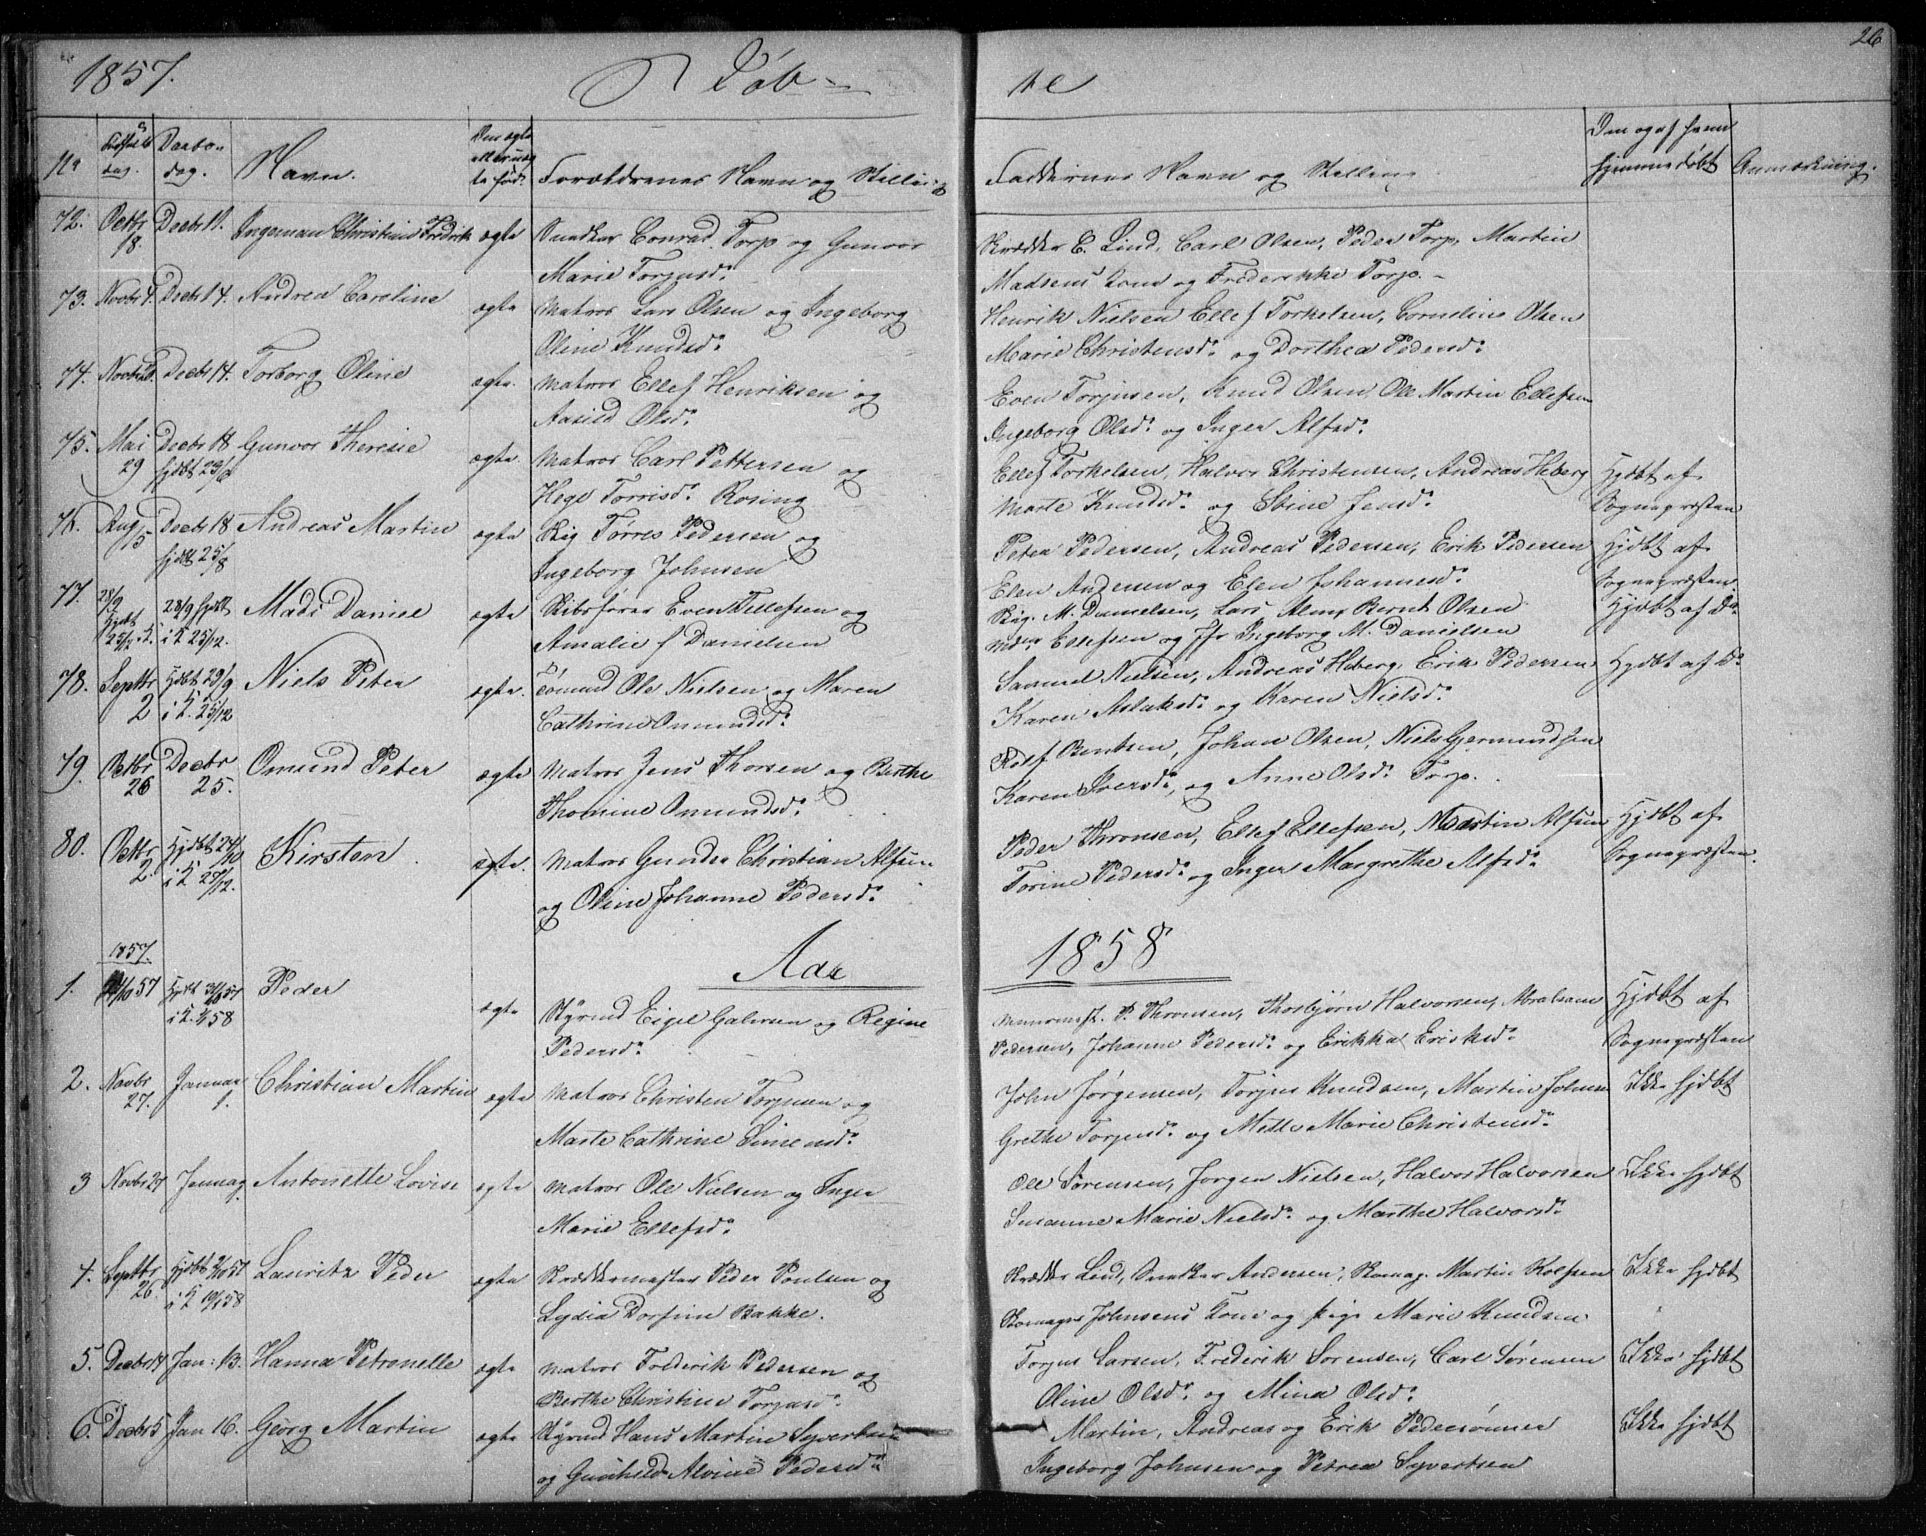 1857. Døb-
te 26
No Fødsels dag. Daabs dag. Navn. Den ægte eller uægte fød. Forældrenes Navn og Stilling
Faddernes Navn og Stilling Om og af hvem hjemmedøbt Anmærkning.
72. Octbr 18. Decbr 11. Ingeman Christian Fredrik ægte Snedker Conrad Torp og Gunvor
Marie Torjusd.
Skrædder E. Lind, Carl Olsen, Peder Torp, Martin
Madsens Kone og Frederikke Torp.
73. Novbr 4. Decbr 14. Andrea Caroline ægte Matros Lars Olsen og Ingeborg
Oline Knudsd.
Henrik Nielsen Ellef Torkelsen, Cornelius Olsen
Marie Christensd. og Dorthea Pedersd.
74. Novbr Decbr 14. Torborg Oline ægte. Matros Ellef Henriksen og
Aasild Olsd.
Even Torjusen, Knud Olsen, Ole Martin Ellefsen
Ingeborg Olsd. og Inger Alfsd.
75. Mai 29 Decbr 18 hjdbt 23/6 Gunvor Theresie ægte. Matros Carl Pettersen og
Hege Torrisd. Rosing
Ellef Torkelsen, Halvor Christensen, Andreas Heberg
Marte Knudsd. og Stine Jensd.
Hjdbt af
Sognepræsten
76. Aug 15 Decbr 18 hjdbt 25/8 Andreas Martin ægte Skig Tørres Pedersen og
Ingeborg Johnsen
Peter Pedersen, Andreas Pedersen, Erik Pedersen
Elen Andersen og Elen Johannesd.
Hjdbt af
Sognepræsten
77. 28/9 Hjdbt 25/12 i K. 28/9 hjdbt i K 25/12. Mads Daniel ægte Skibsfører Even Tellefsen og
Amalie f Danielsen
Skig. M. Danielsen, Lars Alm, Bernt Olsen
Md. Ellefsen og Jfr Ingeborg M. Danielsen
Hjdbt af Do
78. Septbr 2 Hjdbt 29/9 i K. 25/12 Niels Peter ægte. Tømmd Ole Nielsen og Maren
Cathrine Omundsd.
Samuel Nielsen, Andreas Heberg, Erik Pedersen
Karen Aslaksd. og Karen Nielsd.
Hjdbt af Do
79. Octbr 26 Decbr 25. Omund Peter ægte Matros Jens Thorsen og Berthe
Thomine Omundsd.
Rolf Bentsen, Johan Olsen, Niels Gjermundsen
Karen Iversd. og Anne Olsd. Torp.
80. Octbr 2. Hjdbt 24/10 i K 25/12. Kirsten ægte. Matros Gunder Christian Alfsen
og Oline Johanne Pedersd.
Peder Thronsen, Ellef Ellefsen, Martin Alfsen
Torine Pedersd. og Inger Margrethe Alfsd.
Hjdbt af
Sognepræsten.
Aar 1858
1857.
1. /10 57 i K. 1/1 58 Peder ægte Styrmd Eigel Galvesen og Regine
Pedersd.
P. Thronsen, Thorbjørn Halvorsen, Abraham
Pedersen, Johanne Pedersd. og Erikka Eriksd.
Hjdbt af
Sognepræsten
2. Novbr 27. Januar 1. Christian Martin ægte Matros Christen Torjusen og
Marte Cathrine Simensd.
John Jørgensen, Torjus Knudsen, Martin Johnsen
Grethe Torjusd. og Mette Marie Christensd.
Ikke hjdbt
3 Novbr Januar Antonette Lovise ægte Matros Ole Nielsen og Inger
Marie Ellefsd.
Ole Sørensen, Jørgen Nielsen, Halvor Halvorsen
Susanne Marie Nielsd. og Marthe Halvorsd.
Ikke hjdbt
4. Septbr 26. Hjdbt 57 i K 10/1 58 Lauritz Peder ægte Skræddermester Peder Poulsen og
Lydia Dorfine Bakke.
Skrædder Lind, Snedker Andersen, Skomag. Martin Rolfsen
Skomager Johnsens Kone og Pige Marie Knudsen
Ikke hjdbt
5. Decbr 14 Jan: 13. Hanna Petronelle ægte Matros Frederik Pedersen og
Berthe Christine Torjusd.
Torjus Larsen, Frederik Sørensen, Carl Sørensen
Oline Olsd. og Mina Olsd.
Ikke hjdbt
6. Decbr 5 Jan 16. Georg Martin ægte Styrmd Hans Martin Syvertsen
og Gunhild Alvine Pedersd.
Martin, Andreas og Erik Pedersønner
Ingeborg Johnsen og Petrea Syvertsen
Ikke hjdbt